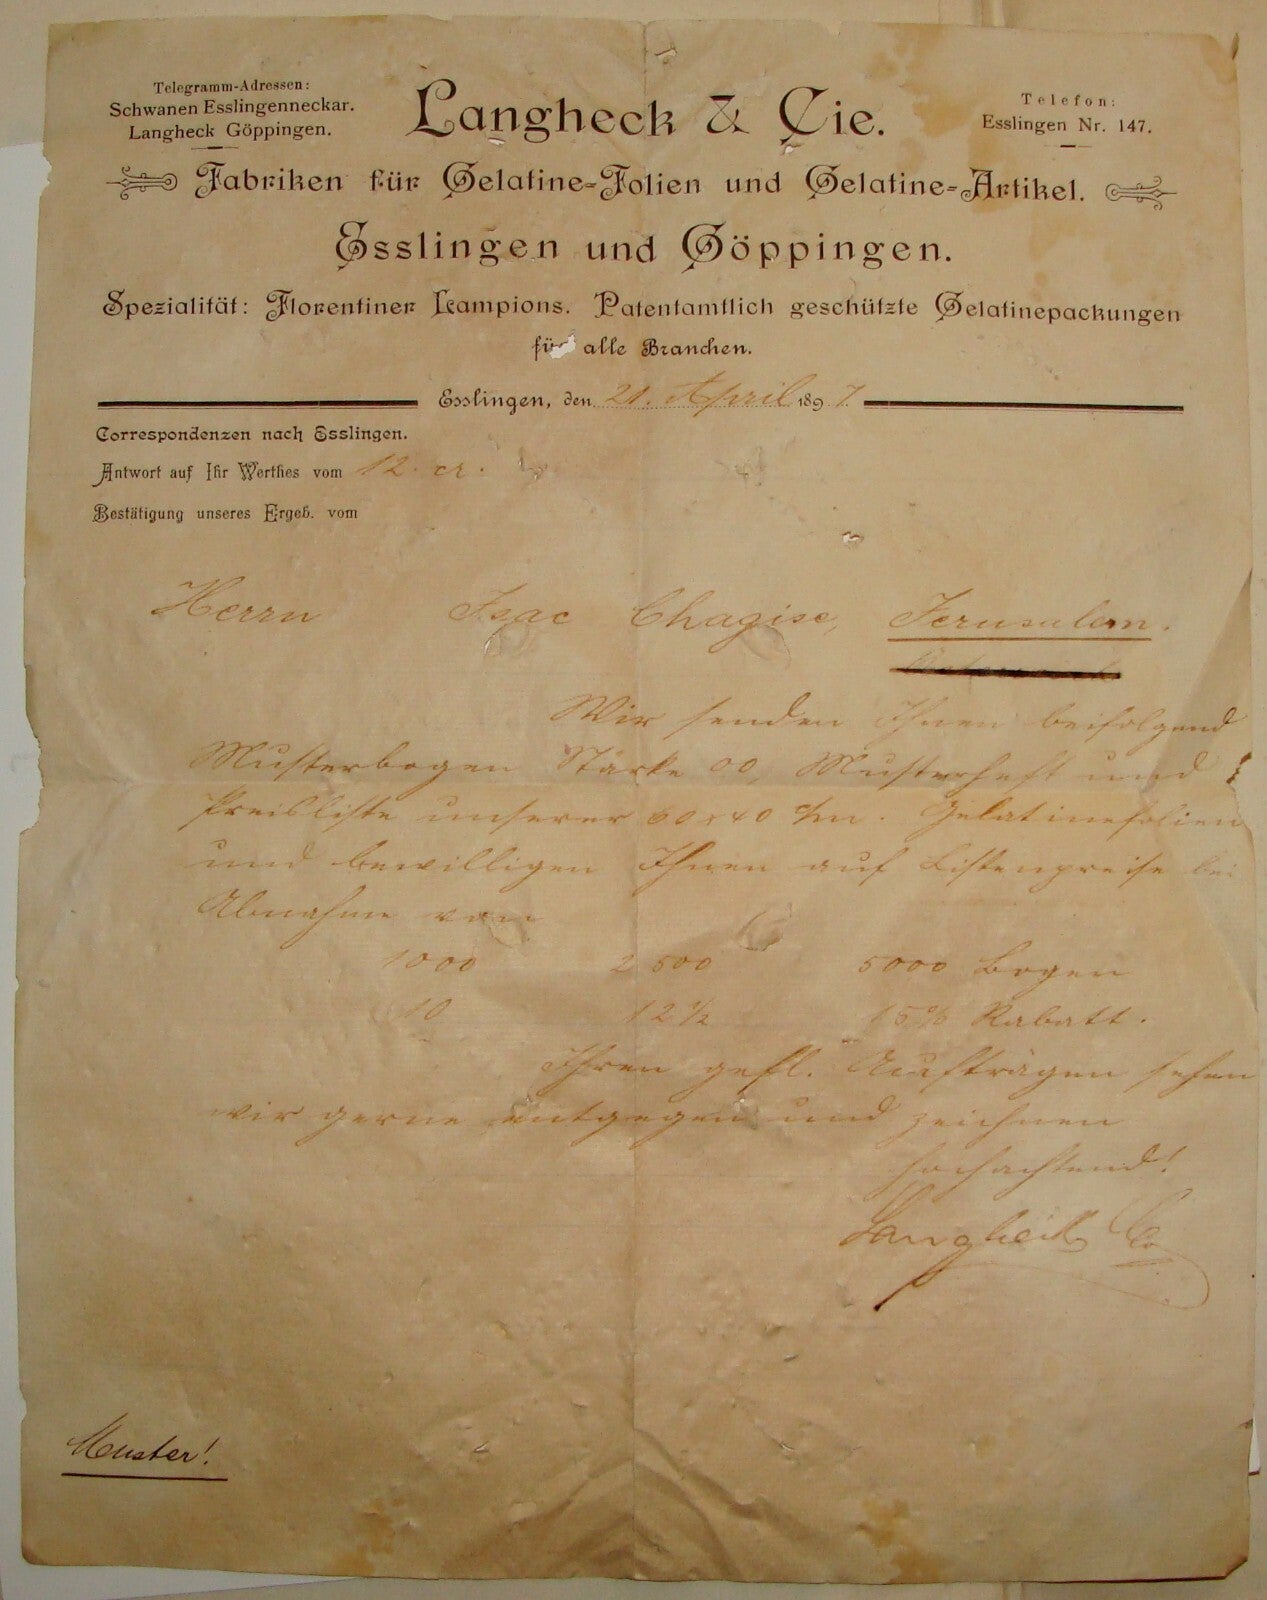 Telegramm-Adressen:
Schwanen Esslingenneckar.
Langheck Göppingen.
Langheck & Cie.
Telefon:
Esslingen Nr. 147.
Fabriken für Gelatine-Folien und Gelatine-Artikel.
Esslingen und Göppingen.
Spezialität: Florentiner Lampions. Patentamtlich geschützte Gelatinepackungen
für alle Branchen.
Esslingen, den 21. April 1897
Correspondenzen nach Esslingen.
Antwort auf Ihr Werthes vom 12. cr.
Bestätigung unseres Ergeb. vom
Herrn Isac Chagise, Jerusalem.
Wir senden Ihnen beifolgend
Musterbogen Stärke 00, Musterheft und
Preisliste unserer 60 x 40 c/m. Gelatinefolien
und bewilligen Ihnen auf Listenpreise bei
Abnahme von
1000 2500 5000 Bogen
10 12 1/2 15% Rabatt.
Ihren gefl. Aufträgen sehen
wir gerne entgegen und zeichnen
hochachtend!
Langheck & Co
Muster!